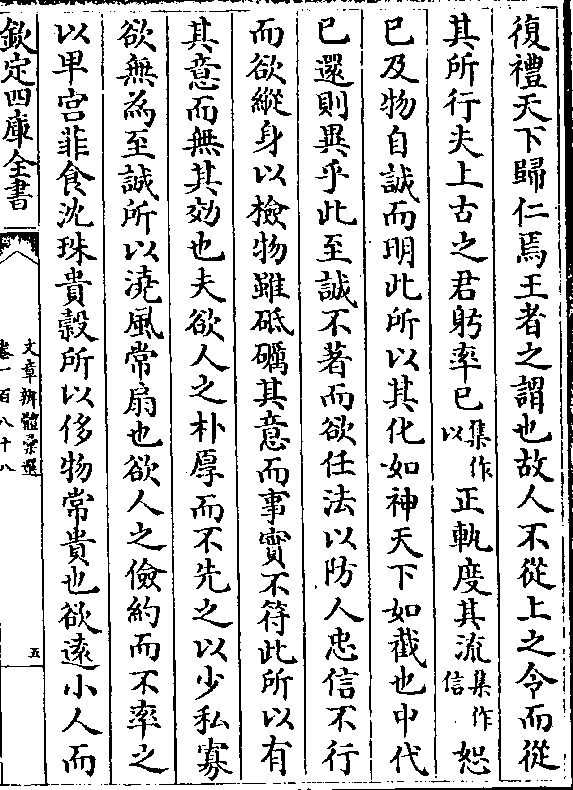 復禮天下歸仁焉王者之謂也故人不從上之令而從
其所行夫上古之君躬率已集作以正軌度其流集作信恕
已及物自誠而明此所以其化如神天下如截也中代
已還則異乎此至誠不著而欲任法以防人忠信不行
而欲縱身以檢物雖砥礪其意而事實不符此所以有
其意而無其効也夫欲人之朴厚而不先之以少私寡
欲無為至誠所以澆風常扇也欲人之儉約而不率之
以卑宮菲食沈珠貴穀所以侈物常貴也欲逺小人而
欽定四庫全書
文章辨體彙選
卷一百八十八
五